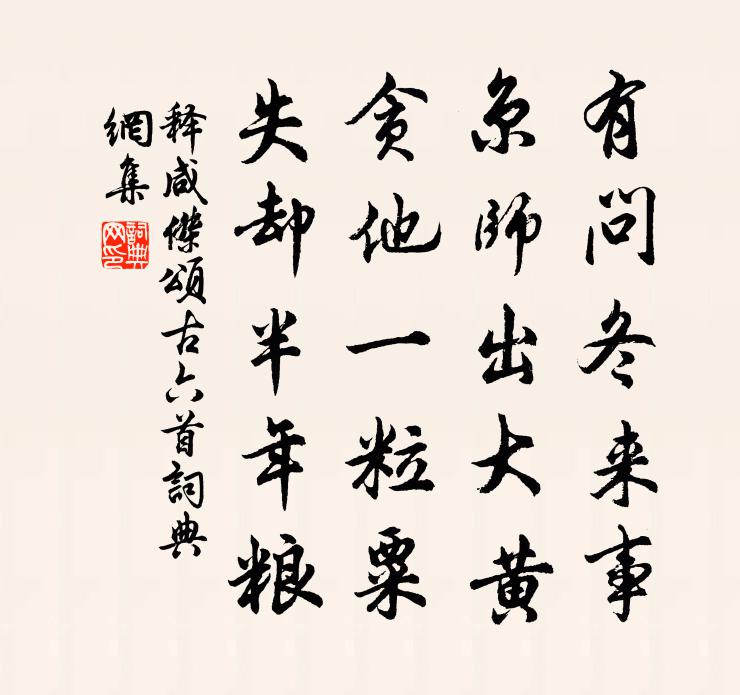 有问冬来事
京師出大黄
贪他一粒粟
失却半年粮
释咸傑頌古六首詞典
網集
詞典
网印